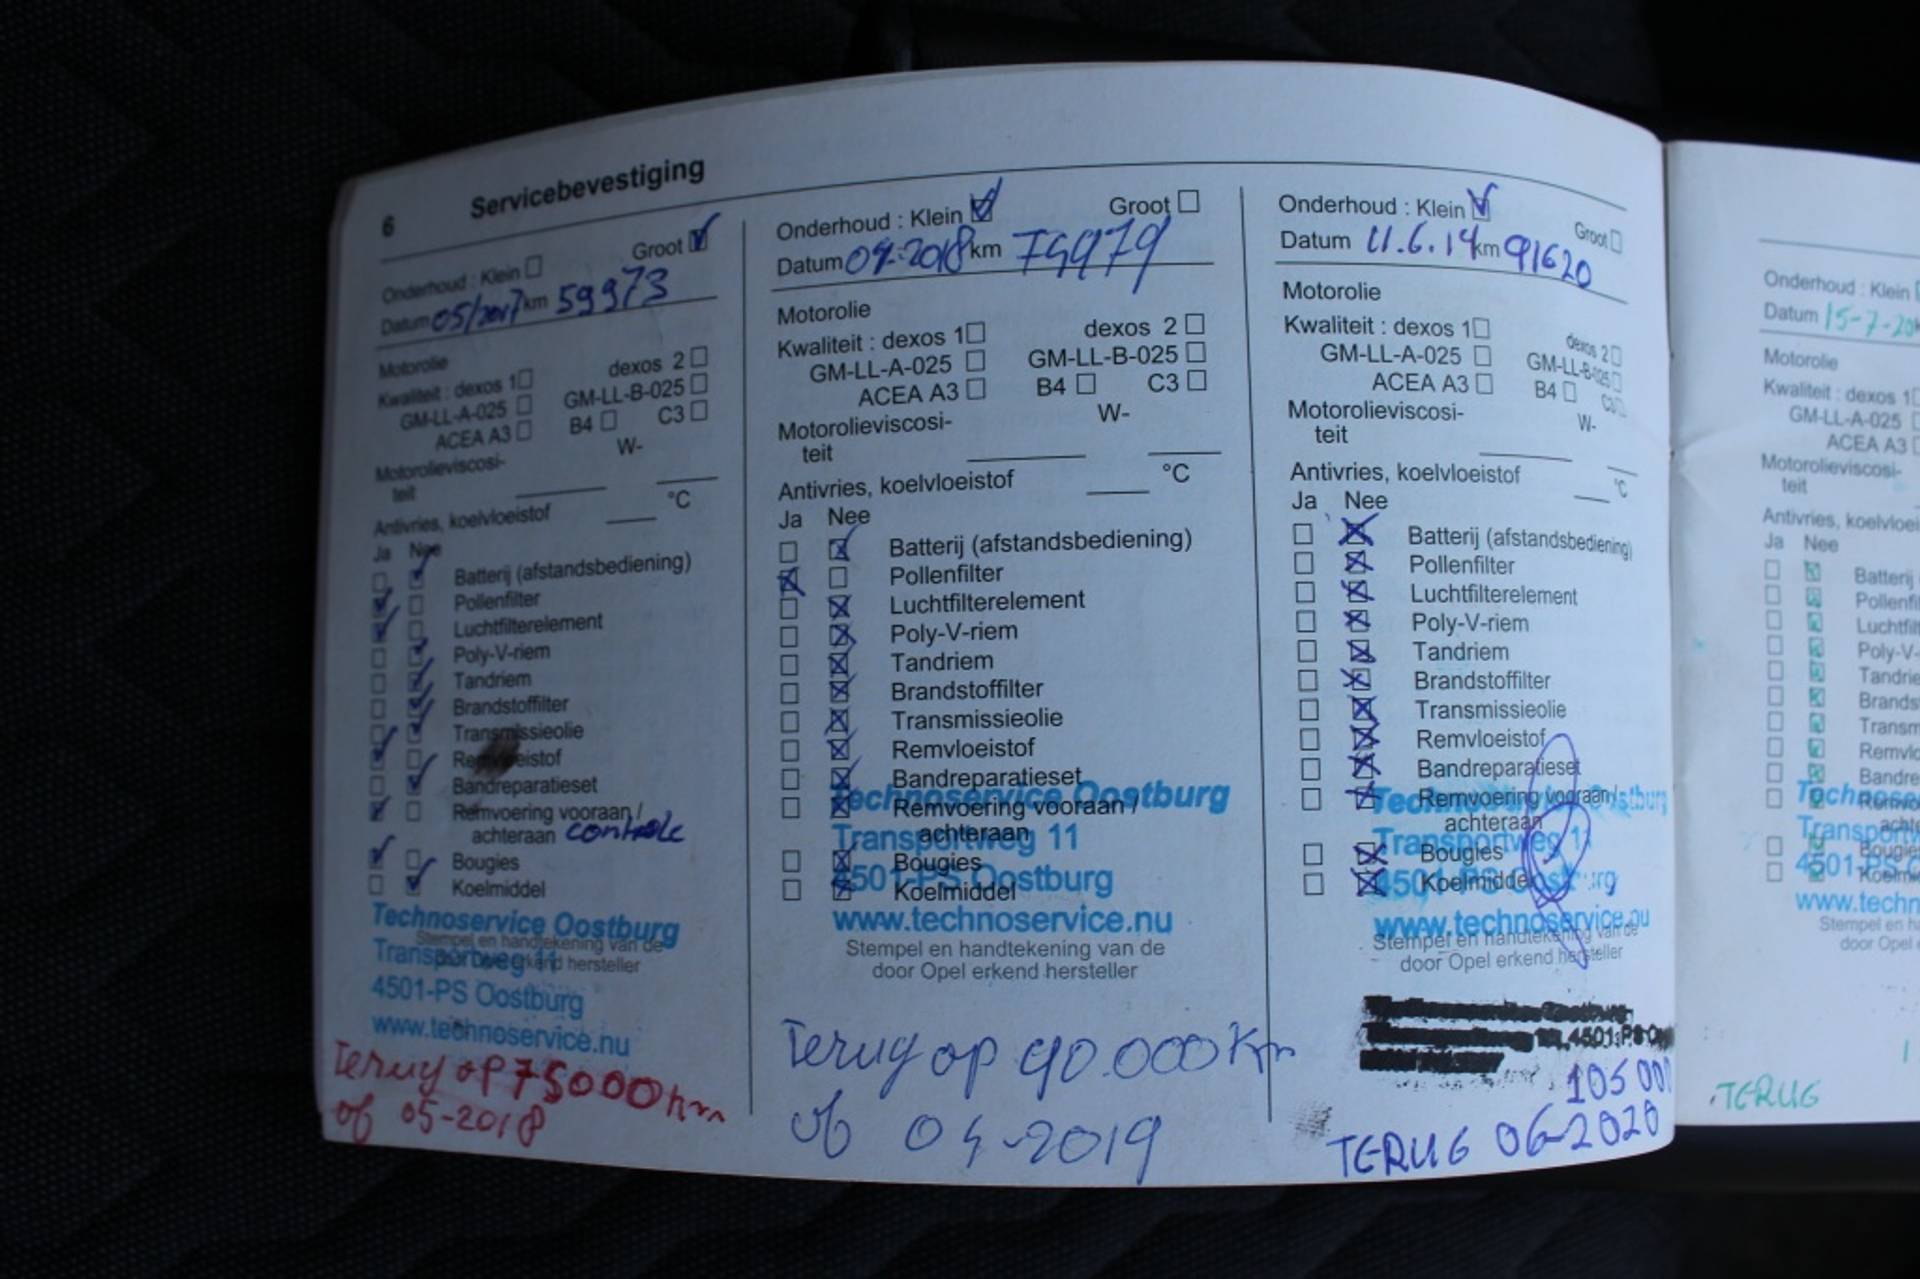 6 Servicebevestiging
Onderhoud : Klein Groot
Datum 05/2017 km 59973
Motorolie
Kwaliteit : dexos 1 dexos 2
GM-LL-A-025 GM-LL-B-025
ACEA A3 B4 C3
Motorolieviscosi- W-
teit
Antivries, koelvloeistof °C
Ja Nee
Batterij (afstandsbediening)
Pollenfilter
Luchtfilterelement
Poly-V-riem
Tandriem
Brandstoffilter
Transmissieolie
Remvloeistof
Bandreparatieset
Remvoering vooraan /
achteraan controle
Bougies
Koelmiddel
Technoservice Oostburg
Stempel en handtekening van de
Transportweg 11
door Opel erkend hersteller
4501-PS Oostburg
www.technoservice.nu
Terug op 75000 km
of 05-2018
Onderhoud : Klein Groot
Datum 04-2018 km 75979
Motorolie
Kwaliteit : dexos 1 dexos 2
GM-LL-A-025 GM-LL-B-025
ACEA A3 B4 C3
Motorolieviscosi- W-
teit
Antivries, koelvloeistof °C
Ja Nee
Batterij (afstandsbediening)
Pollenfilter
Luchtfilterelement
Poly-V-riem
Tandriem
Brandstoffilter
Transmissieolie
Remvloeistof
Bandreparatieset
Technoservice Oostburg
Remvoering vooraan /
achteraan
Transportweg 11
Bougies
4501-PS Oostburg
Koelmiddel
www.technoservice.nu
Stempel en handtekening van de
door Opel erkend hersteller
Terug op 90.000 km
of 04-2019
Onderhoud : Klein Groot
Datum 11.6.19 km 91620
Motorolie
Kwaliteit : dexos 1 dexos 2
GM-LL-A-025 GM-LL-B-025
ACEA A3 B4 C3
Motorolieviscosi- W-
teit
Antivries, koelvloeistof °C
Ja Nee
Batterij (afstandsbediening)
Pollenfilter
Luchtfilterelement
Poly-V-riem
Tandriem
Brandstoffilter
Transmissieolie
Remvloeistof
Bandreparatieset
Technoservice Oostburg
Remvoering vooraan /
achteraan
Transportweg 11
Bougies
4501-PS Oostburg
Koelmiddel
www.technoservice.nu
Stempel en handtekening van de
door Opel erkend hersteller
4501-PS
105 000
TERUG 06-2020
Onderhoud : Klein
Datum 15-7-20
Motorolie
Kwaliteit : dexos 1
GM-LL-A-025
ACEA A3
Motorolieviscosi-
teit
Antivries, koelvloei
Ja Nee
Batterij
Pollenfi
Luchtfilt
Poly-V-
Tandrie
Brands
Transm
Remvlo
Bandre
Technose
Remvo
Transp
achte
Bougies
4501-PS
Koelmi
www.techn
Stempel en ha
door Opel
TERUG